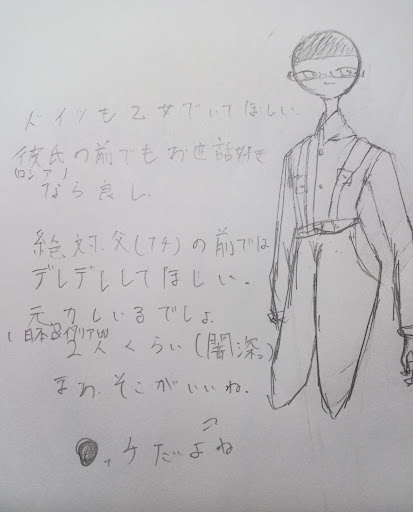 ドイツも乙女でいてほしい
彼氏の前でもお世話好き
(ロシア)
なら良し
絶対、父(ナチ)の前では
デレデレしてほしい。
元カレいるでしょ
(日本&イタリア
2人くらい(闇深。)
まぁ、そこがいいね。
ケだよね